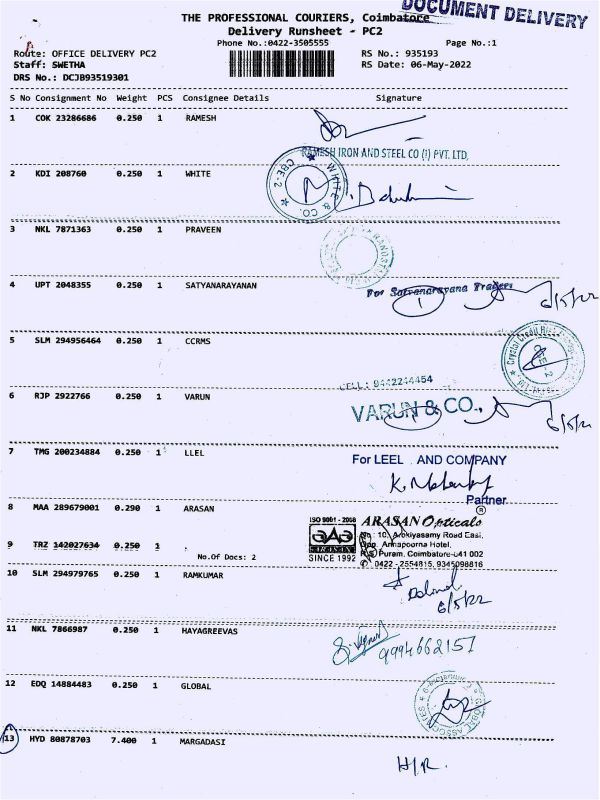 THE PROFESSIONAL COURIERS, Coimbatore
DOCUMENT DELIVERY
Delivery Runsheet - PC2
Phone No.:0422-3505555 Page No.:1
Route: OFFICE DELIVERY PC2 RS No.: 935193
Staff: SWETHA RS Date: 06-May-2022
DRS No.: DCJB93519301
S No Consignment No Weight PCS Consignee Details Signature
1 COK 23286686 0.250 1 RAMESH
RAMESH IRON AND STEEL CO (I) PVT. LTD,
2 KDI 208760 0.250 1 WHITE
WHITE & CO. CBE-2
3 NKL 7871363 0.250 1 PRAVEEN
4 UPT 2048355 0.250 1 SATYANARAYANAN
For Satyanarayana Traders
6/5/22
5 SLM 294956464 0.250 1 CCRMS
6 RJP 2922766 0.250 1 VARUN
CELL: 9442244454
VARUN & CO.,
6/5/22
7 TMG 200234884 0.250 1 LLEL
For LEEL AND COMPANY
Partner
8 MAA 289679001 0.290 1 ARASAN
ISO 9001 - 2008 ARASAN Opticals ®
9 TRZ 142027634 0.250 1
No.Of Docs: 2
aAa
ARASAN
SINCE 1992
No: 10, Arokiyasamy Road East,
Opp. Annapoorna Hotel,
R.S. Puram, Coimbatore-641 002
0422 - 2554815, 9345098816
10 SLM 294979765 0.250 1 RAMKUMAR
6/5/22
11 NKL 7866987 0.250 1 HAYAGREEVAS
9994662157
12 EDQ 14884483 0.250 1 GLOBAL
13 HYD 80878703 7.400 1 MARGADASI
H/R.